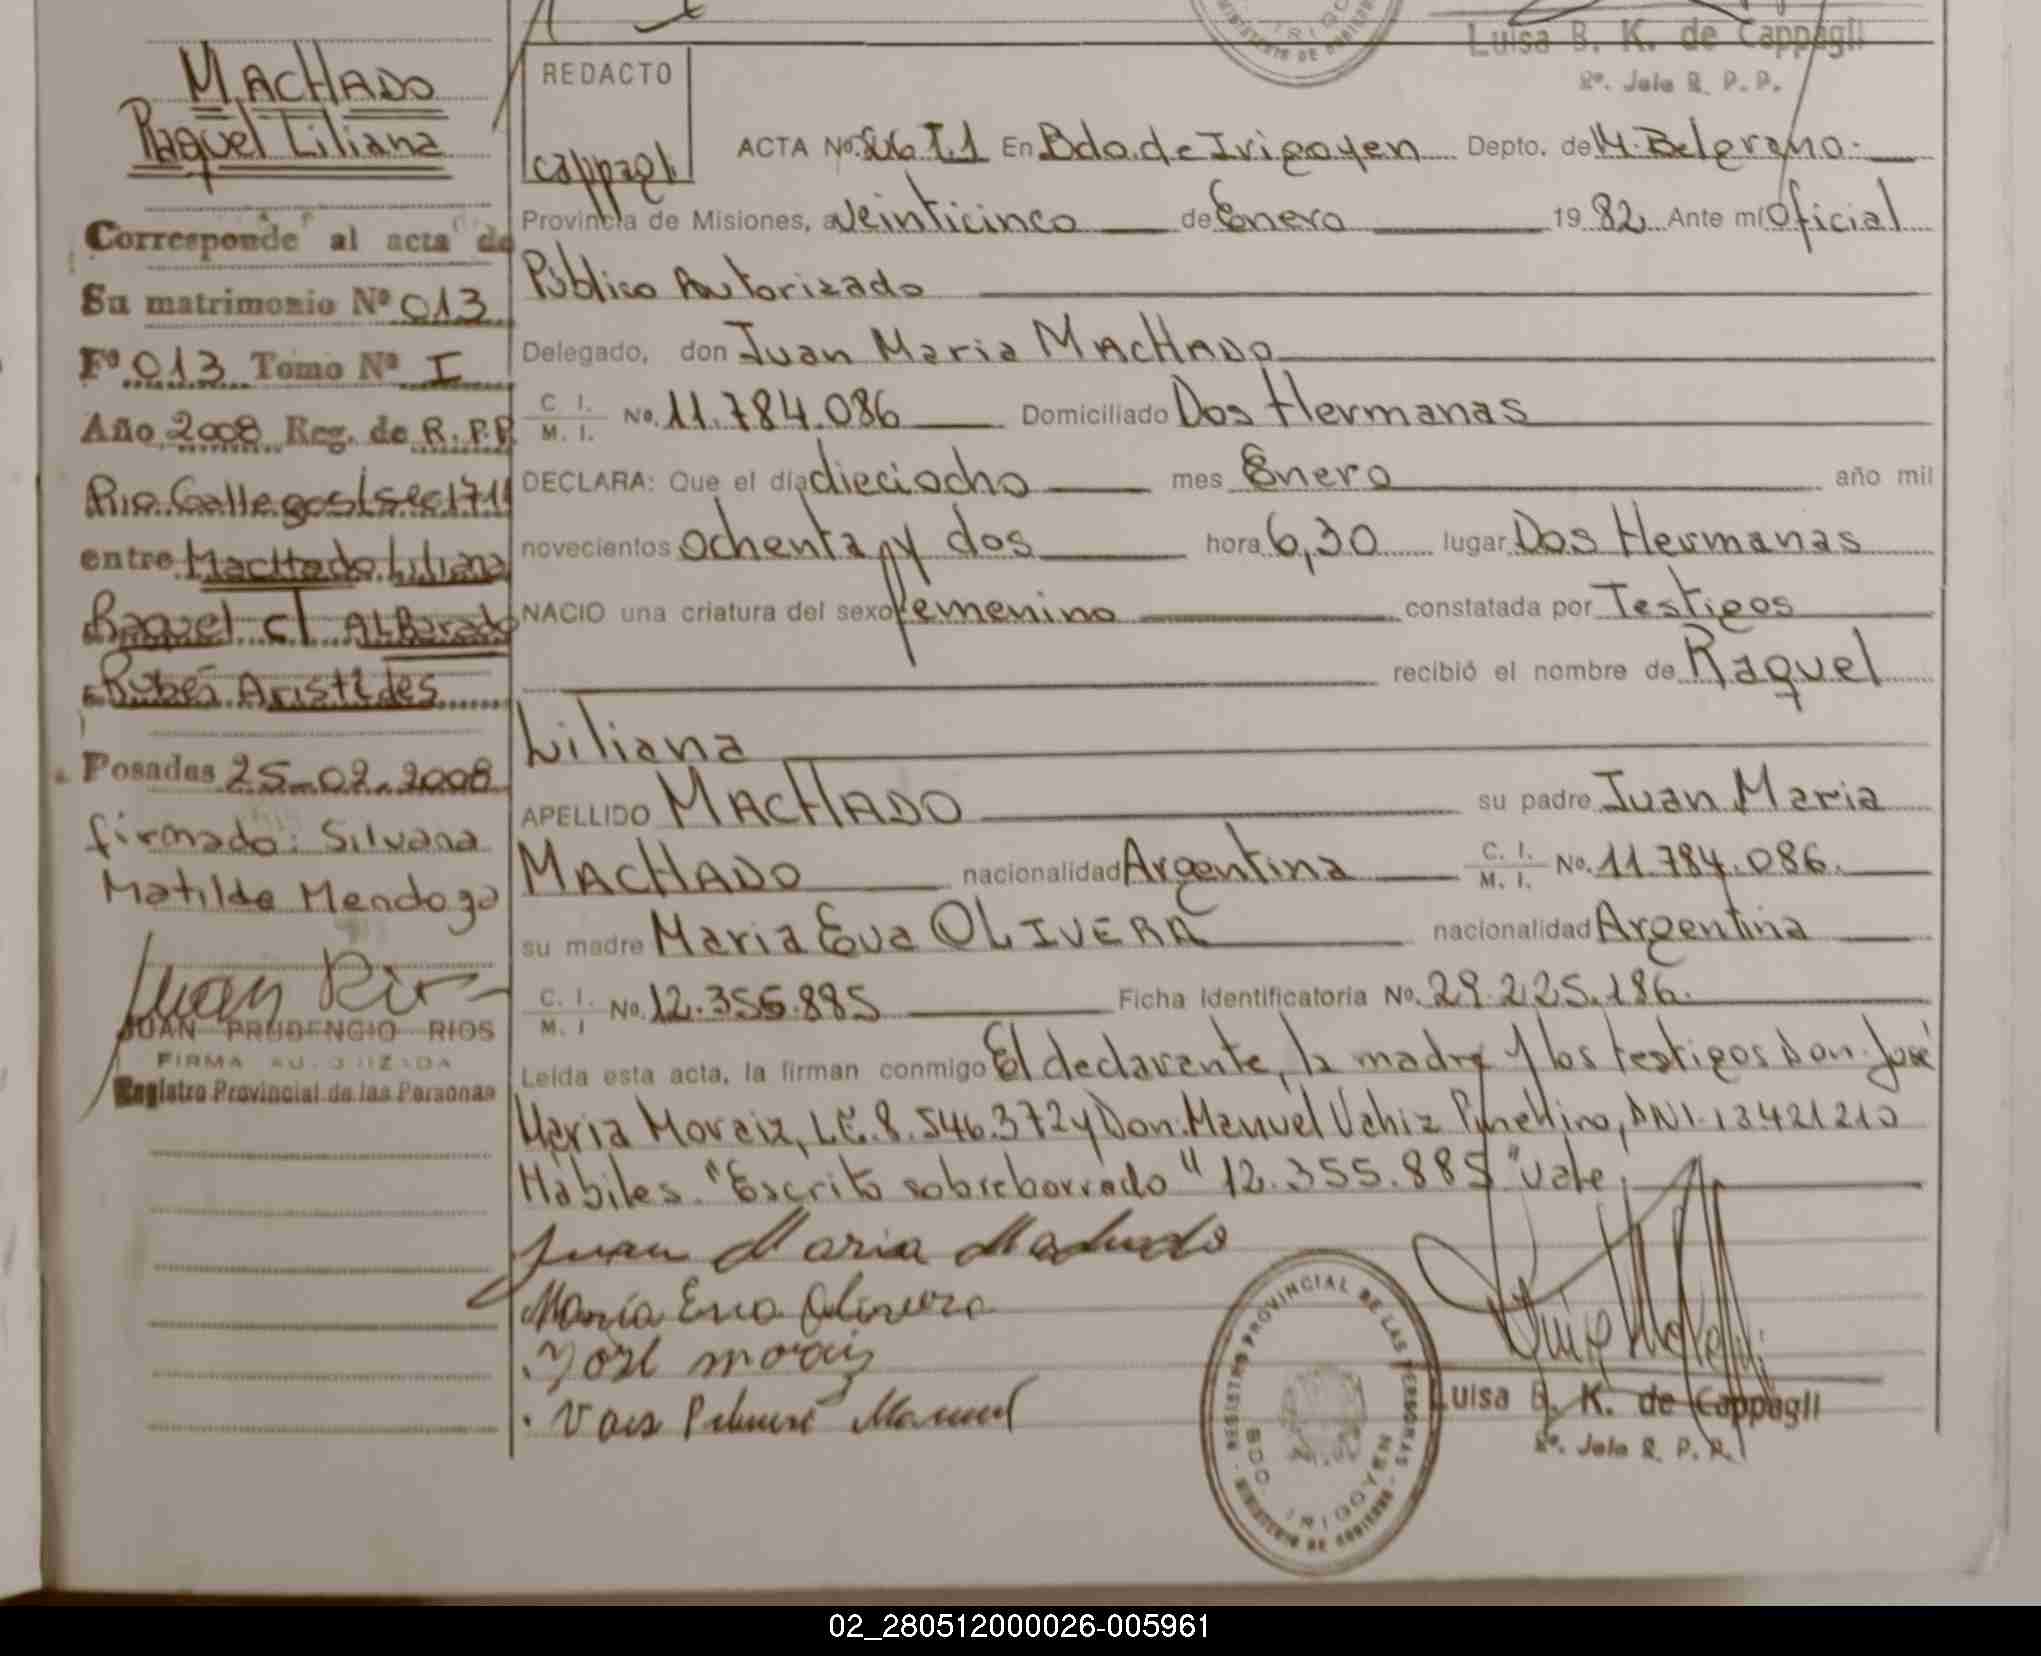 Luisa B. K. de Cappagli
R. P. P.
MACHADO
Raquel Liliana
Corresponde al acta de
Su matrimonio Nº 013
Fº 013 Tomo Nº I
Año 2008 Reg. de R.P.P
Rio Gallegos/sec 1711
entre Machado Liliana
Raquel c/ ALBarado
Rubén Aristides
Posadas 25-02-2008
firmado: Silvana
Matilde Mendoza
JUAN PRUDENCIO RIOS
FIRMA AUTORIZADA
Registro Provincial de las Personas
REDACTO
cappagli
ACTA No. En Bdo. de Irigoyen Depto. de M. Belgrano.
Provincia de Misiones, a Veinticinco de Enero 19 82 Ante mí Oficial
Público Autorizado
Delegado, don Juan Maria MACHADO
C. I. M. I. No. 11.784.086 Domiciliado Dos Hermanas
DECLARA: Que el día dieciocho mes Enero año mil
novecientos ochenta y dos hora 6,30 lugar Dos Hermanas
NACIO una criatura del sexo femenino constatada por Testigos
recibió el nombre de Raquel
Liliana
APELLIDO MACHADO su padre Juan Maria
MACHADO nacionalidad Argentina C. I. M. I. No. 11.784.086.
su madre Maria Eva OLIVERA nacionalidad Argentina
C. I. M. I No. 12.355.885 Ficha Identificatoria No. 29.225.186.
Leída esta acta, la firman conmigo El declarante, la madre y los testigos Don José
Maria Moraiz, L.E. 8.546.372 y Don Manuel DNI. 13421210
Hábiles. "Escrito sobreborrado" 12.355.885 "Vale
Juan Maria Machado
María Eva Olivera
José moraiz
Manuel
REGISTRO PROVINCIAL DE LAS PERSONAS - MINISTERIO DE GOBIERNO -
BDO. IRIGOYEN
Luisa B. K. de Cappagli
R. P. P.
02_280512000026-005961